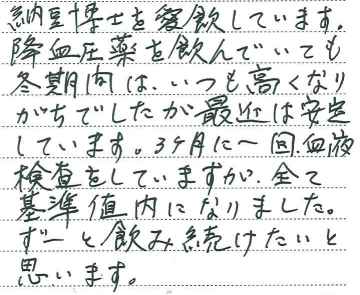 納豆博士を愛飲しています。
降血圧薬を飲んでいても
冬期間は、いつも高くなり
がちでしたが最近は安定
しています。3ヶ月に一回、血液
検査をしていますが、全て
基準値内になりました。
ずーと飲み続けたいと
思います。